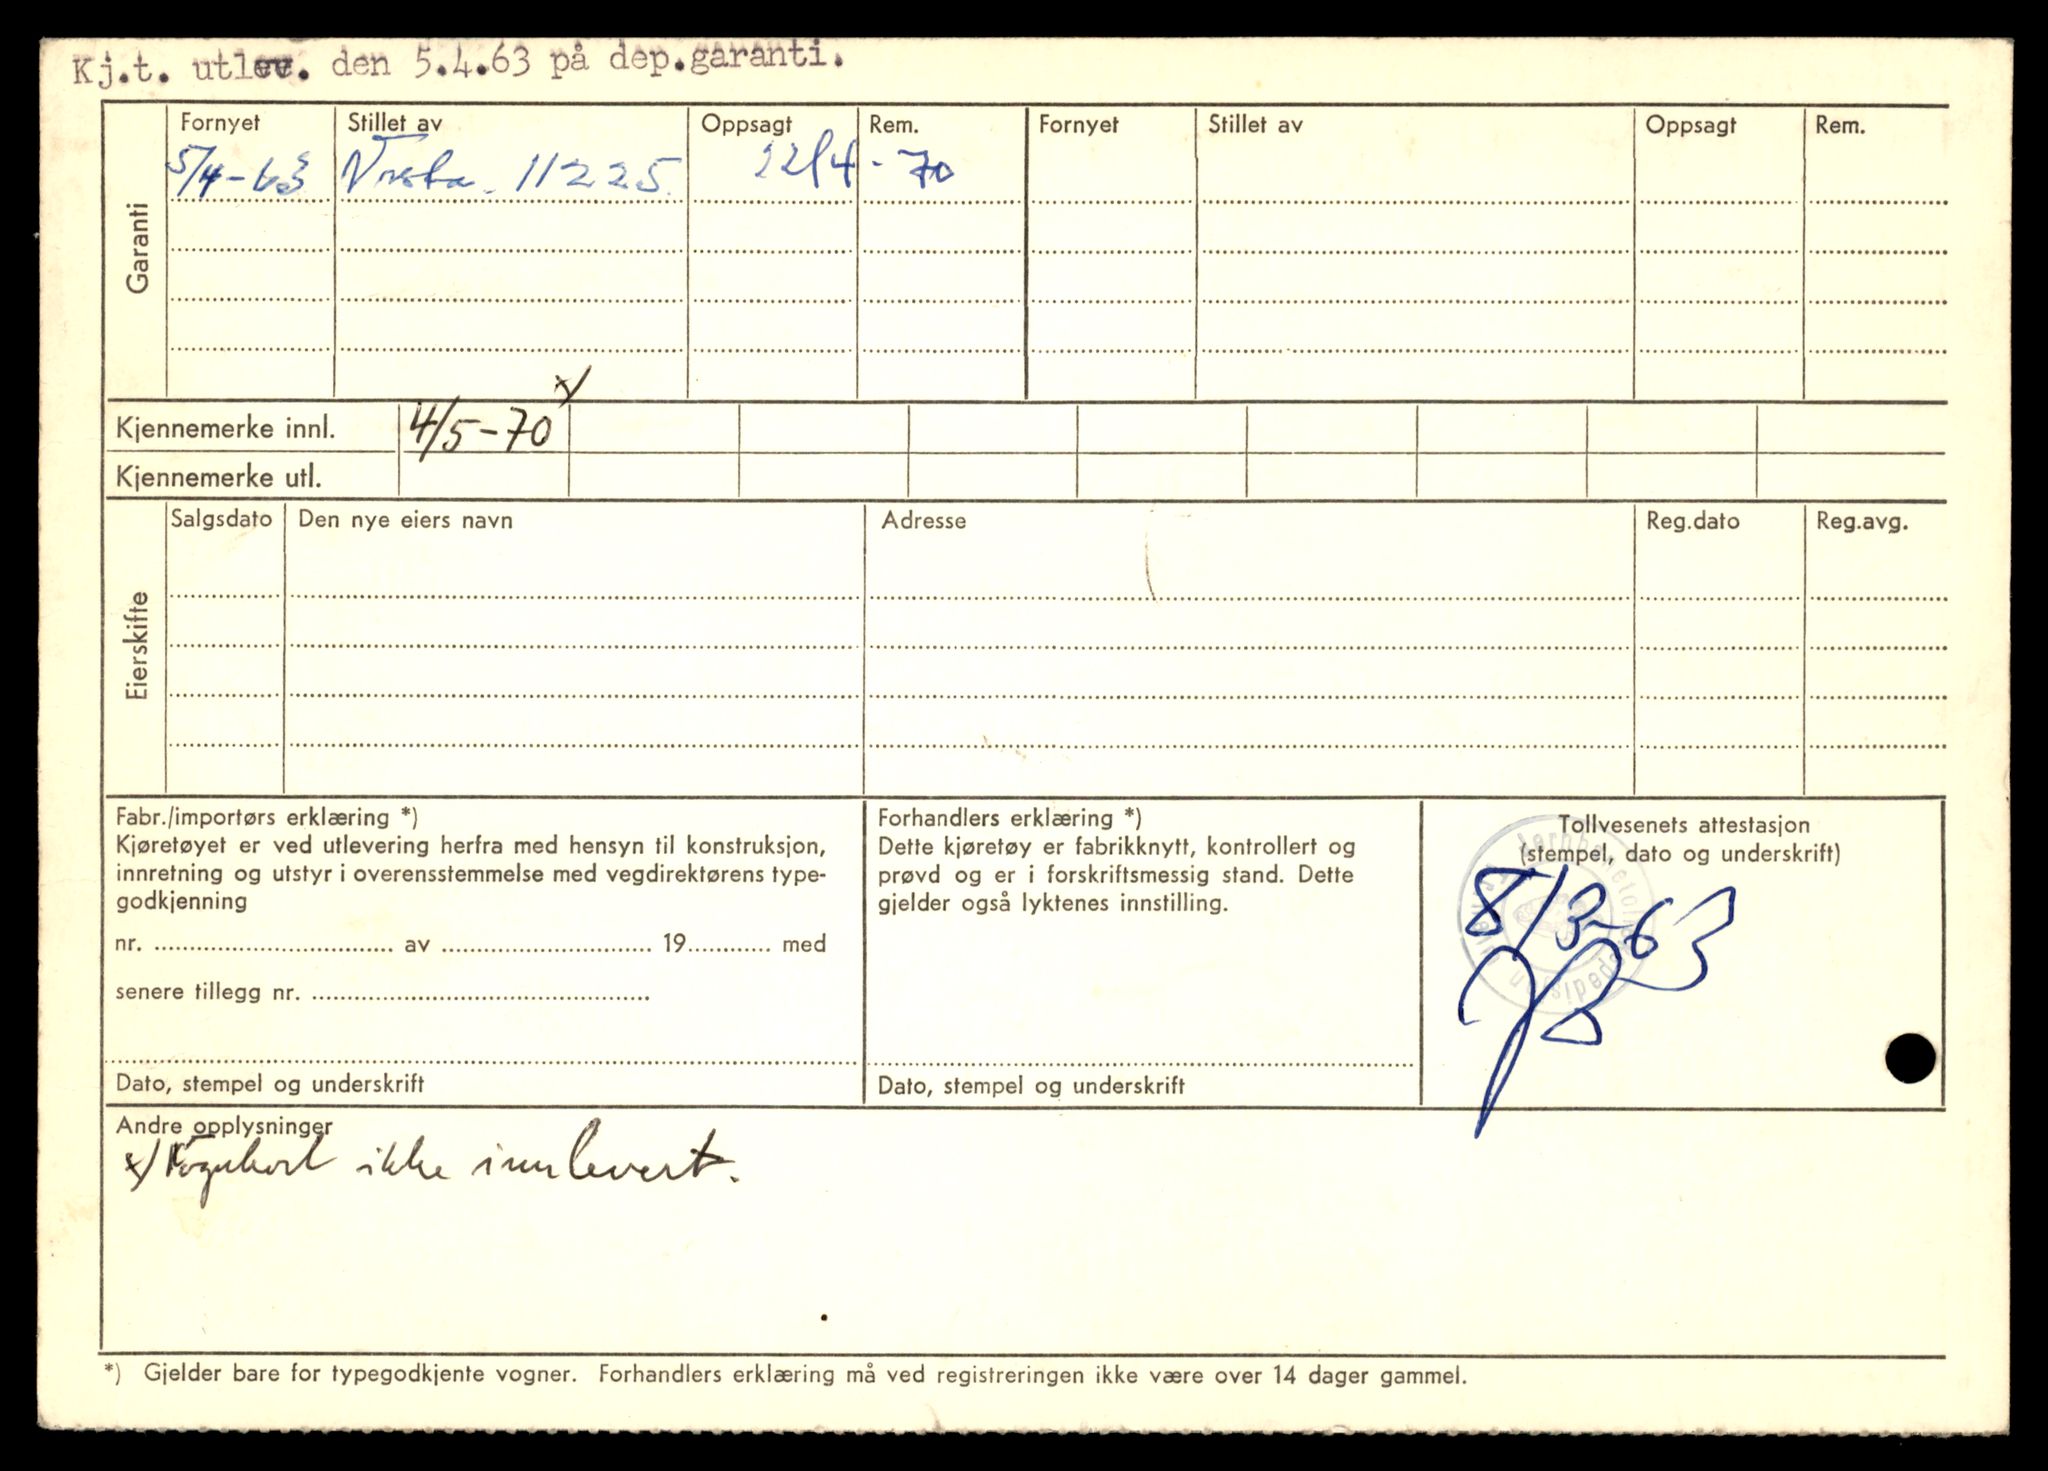 Kj.t. utlev. den 5.4.63 på dep.garanti.
Garanti
Fornyet Stillet av Oppsagt Rem. Fornyet Stillet av Oppsagt Rem.
5/4-63 11225 22/4-70
x/
Kjennemerke innl. 4/5-70
Kjennemerke utl.
Eierskifte
Salgsdato Den nye eiers navn Adresse Reg.dato Reg.avg.
Fabr./importørs erklæring *)
Kjøretøyet er ved utlevering herfra med hensyn til konstruksjon,
innretning og utstyr i overensstemmelse med vegdirektørens type-
godkjenning
nr. ........ av ........ 19........ med
senere tillegg nr. ........
Dato, stempel og underskrift
Forhandlers erklæring *)
Dette kjøretøy er fabrikknytt, kontrollert og
prøvd og er i forskriftsmessig stand. Dette
gjelder også lyktenes innstilling.
Dato, stempel og underskrift
Tollvesenets attestasjon
(stempel, dato og underskrift)
8/3-63
Andre opplysninger
x/ Vognkort ikke innlevert.
*) Gjelder bare for typegodkjente vogner. Forhandlers erklæring må ved registreringen ikke være over 14 dager gammel.